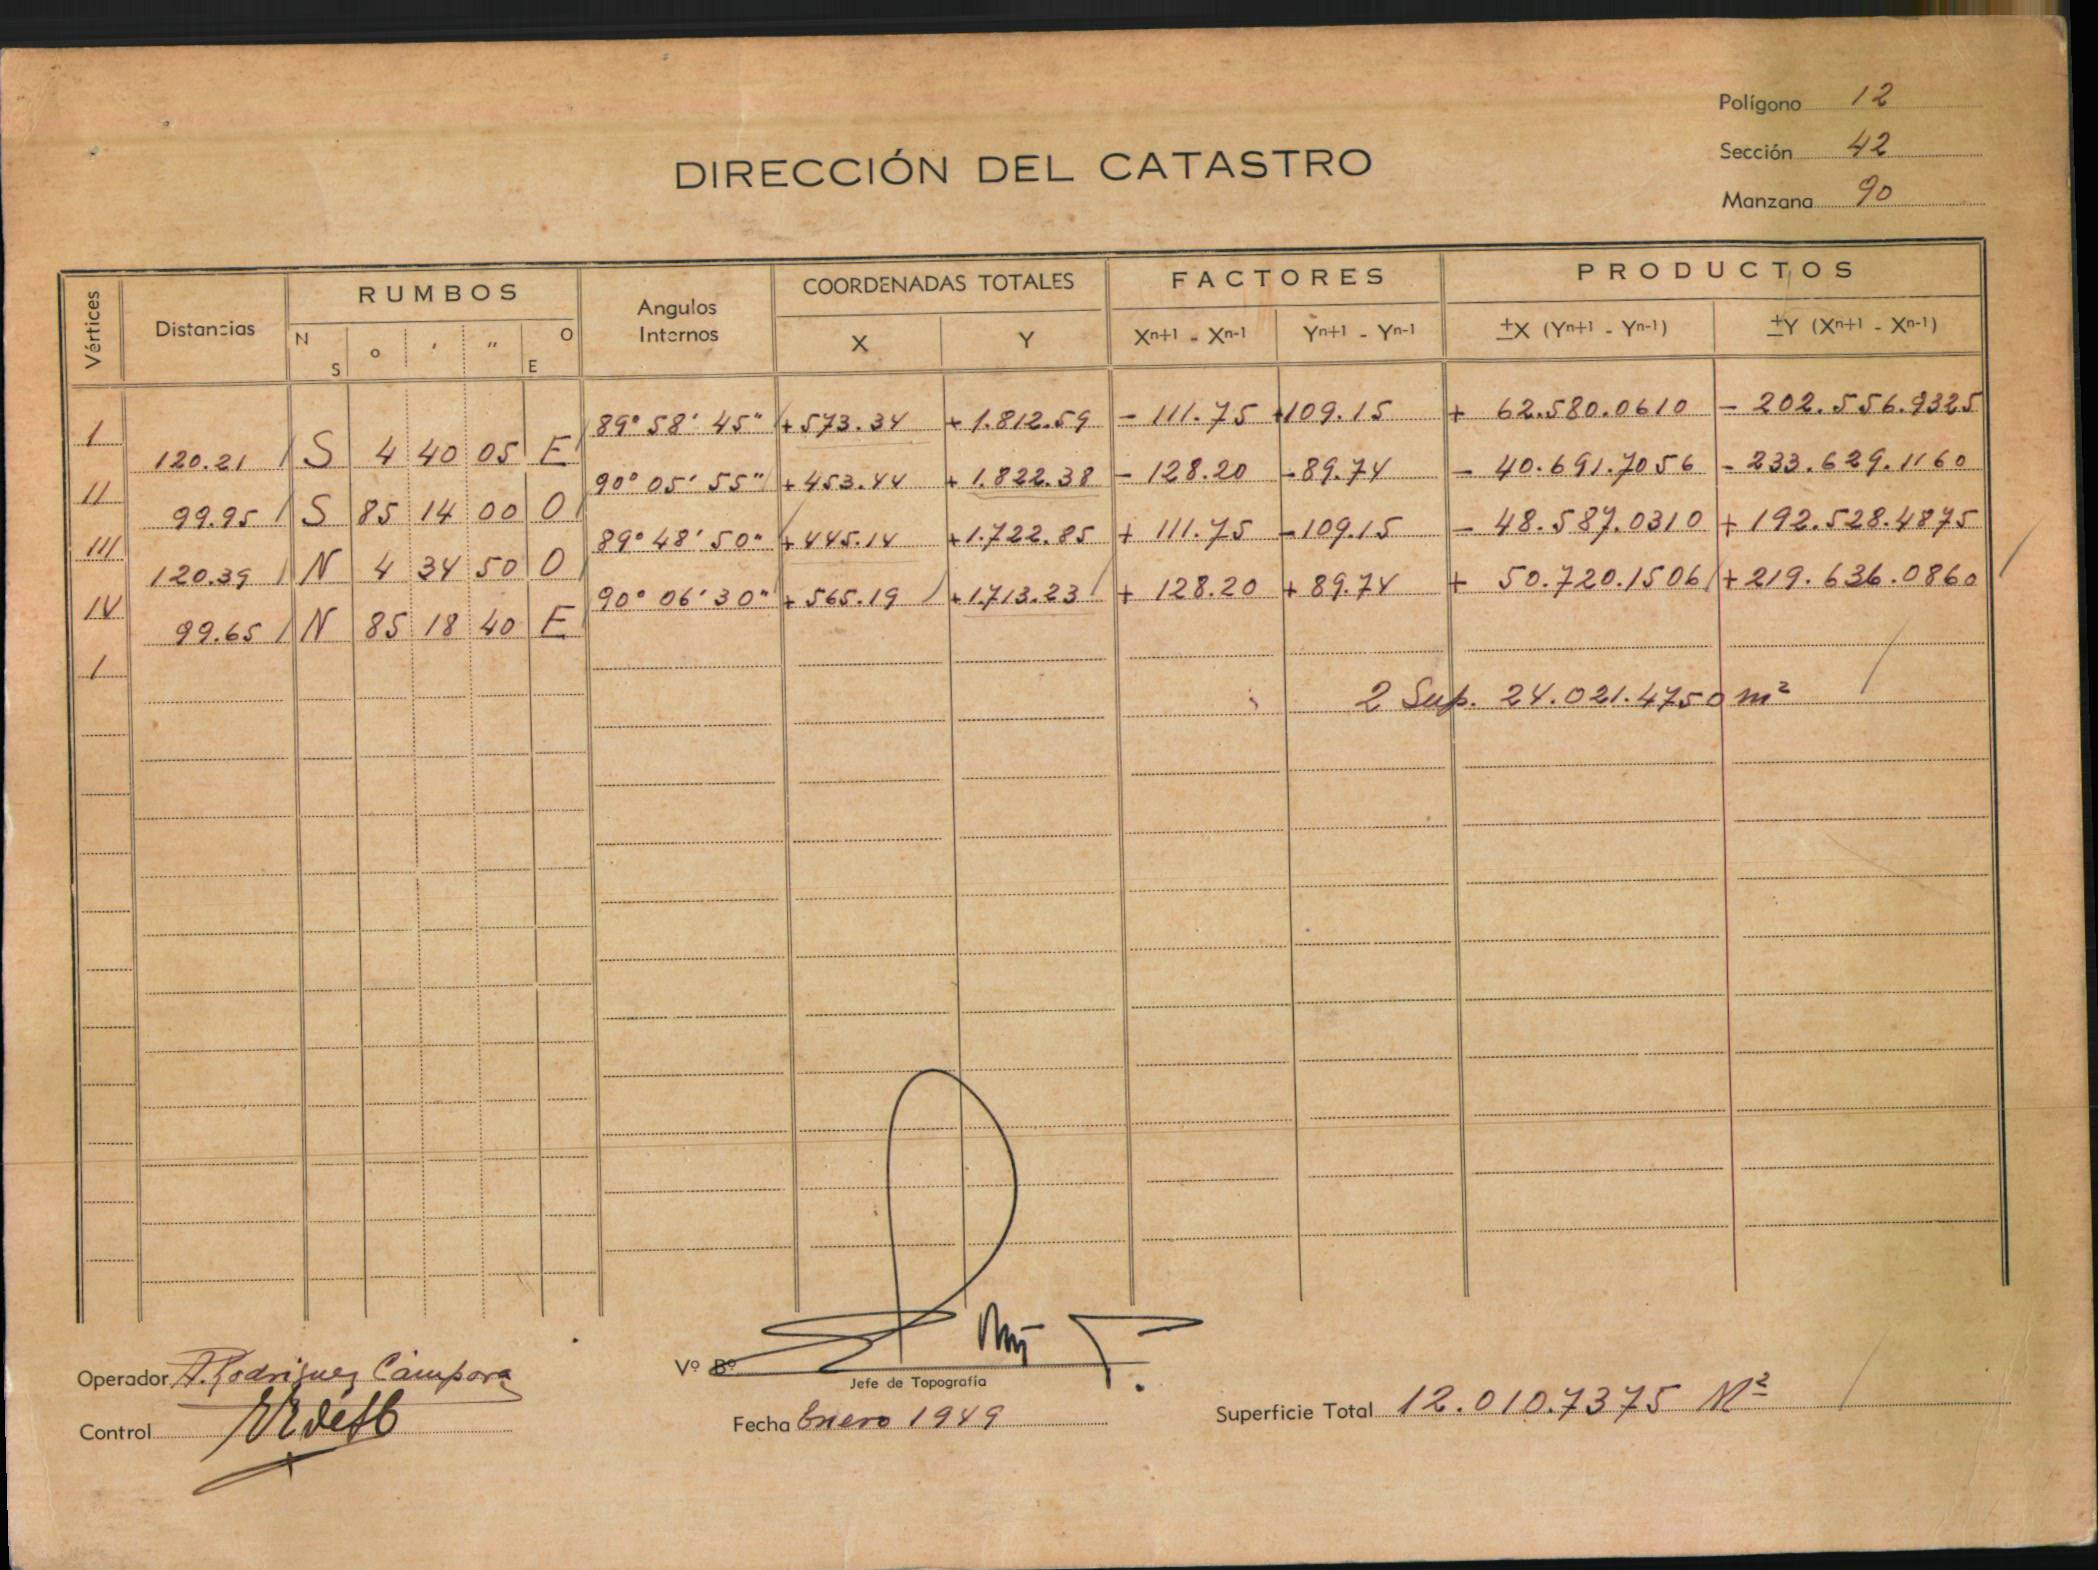 Polígono 12
Sección 42
Manzana 90
DIRECCIÓN DEL CATASTRO
Vértices Distancias RUMBOS Angulos Internos COORDENADAS TOTALES FACTORES PRODUCTOS
N S ° ' " O E X Y Xn+1 - Xn-1 Yn+1 - Yn-1 ±X (Yn+1 - Yn-1) ±Y (Xn+1 - Xn-1)
I 89° 58' 45" +573.34 +1.812.59 -111.75 +109.15 + 62.580.0610 - 202.556.9325
120.21 S 4 40 05 E
II 90° 05' 55" +453.44 +1.822.38 -128.20 -89.74 - 40.691.7056 - 233.629.1160
99.95 S 85 14 00 O
III 89° 48' 50" +445.14 +1.722.85 +111.75 -109.15 - 48.587.0310 + 192.528.4875
120.39 N 4 34 50 O
IV 90° 06' 30" +565.19 +1.713.23 +128.20 +89.74 + 50.720.1506 +219.636.0860
99.65 N 85 18 40 E
I
2 Sup. 24.021.4750 m²
Operador A. Rodriguez Cámpora
Vº Bº
Jefe de Topografía
Control
Fecha Enero 1949
Superficie Total 12.010.7375 M²